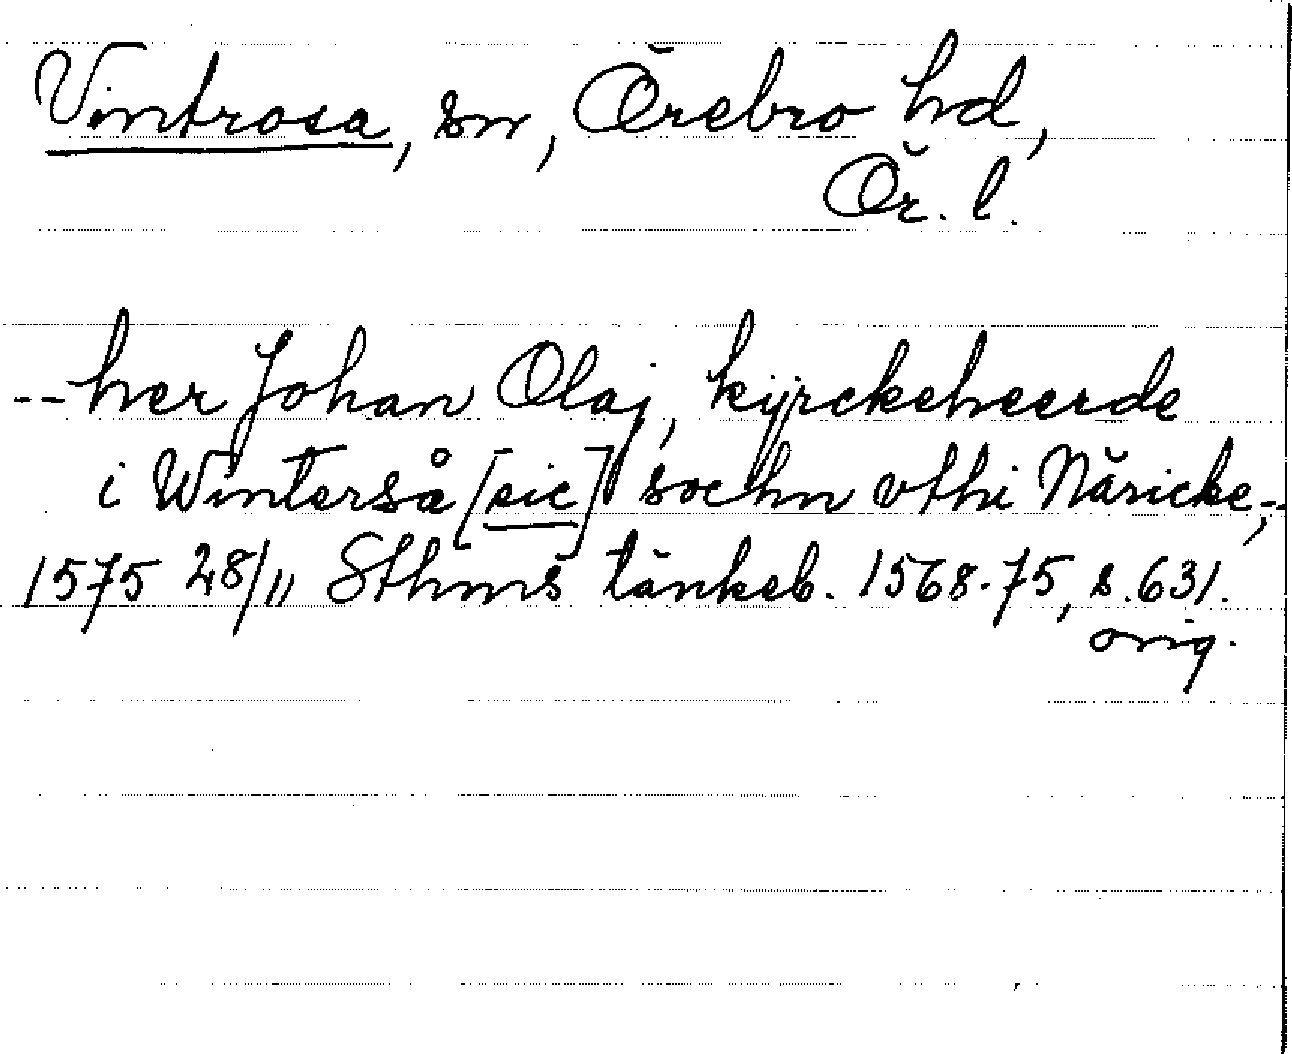 Vintrosa, sn, Örebro hd,
Ör. l.
-- her Johan Olaj, kyrckeheerde
i Winterså [sic] sochn vthi Näricke, --
1575 28/11 Sthms tänkeb. 1568-75, s. 631.
orig.